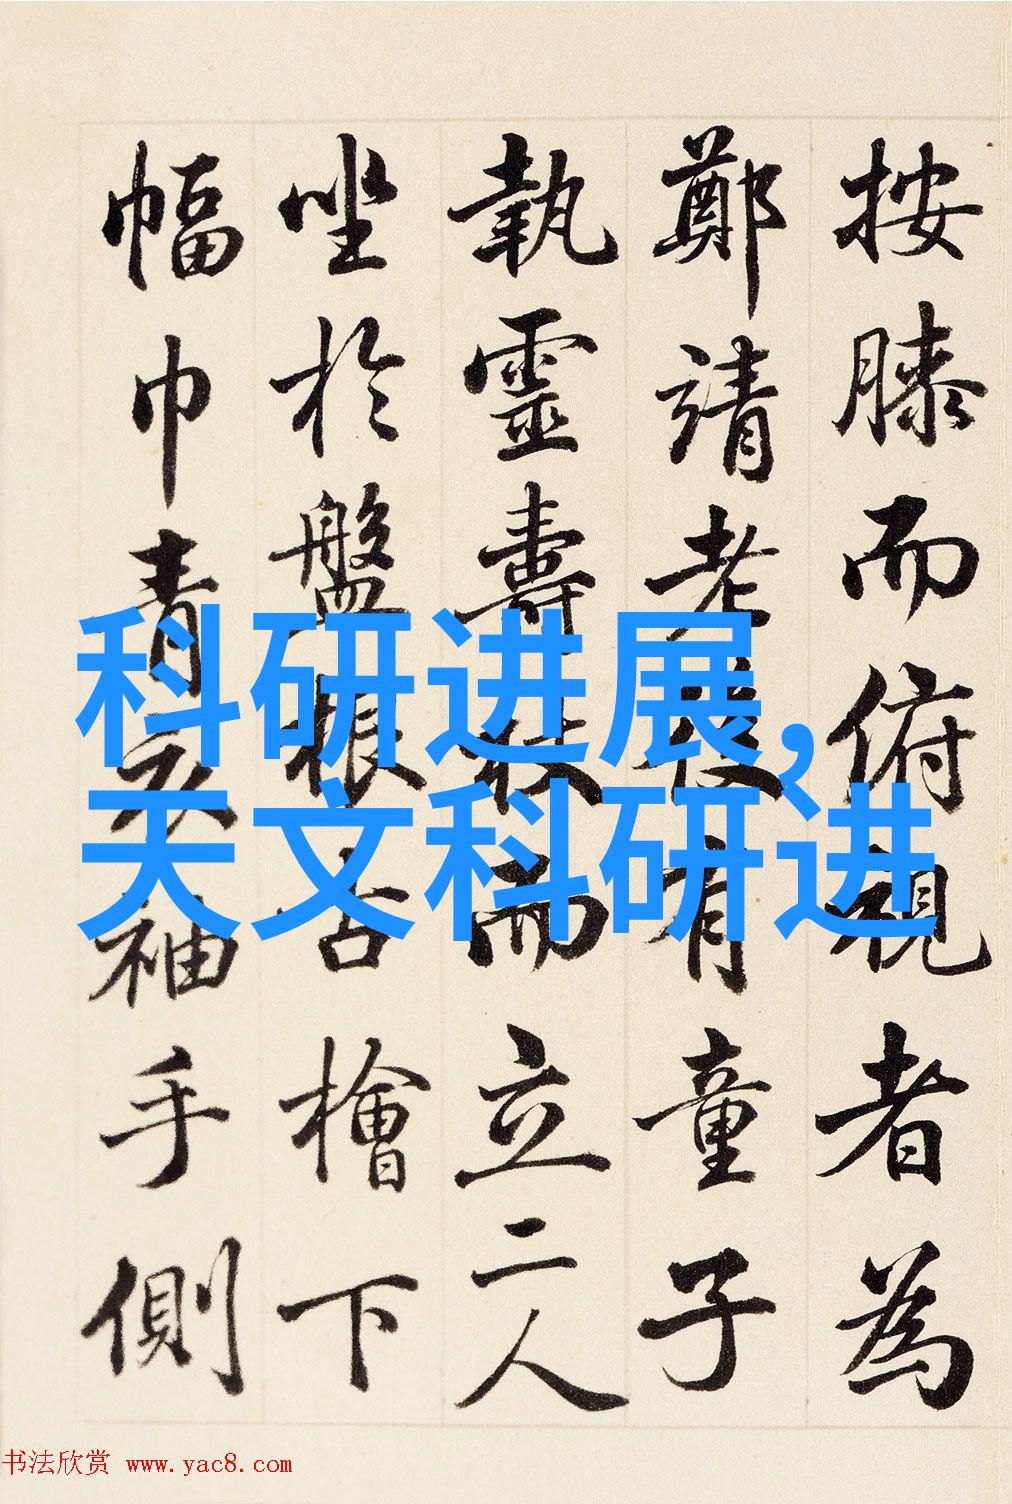 按膝而俯視者為
鄭靖老後有童子
執靈壽杖而立二人
坐於盤根古檜下
幅巾青衣袖手側
科研进展,
天文科研进
书法欣赏 www.yac8.com